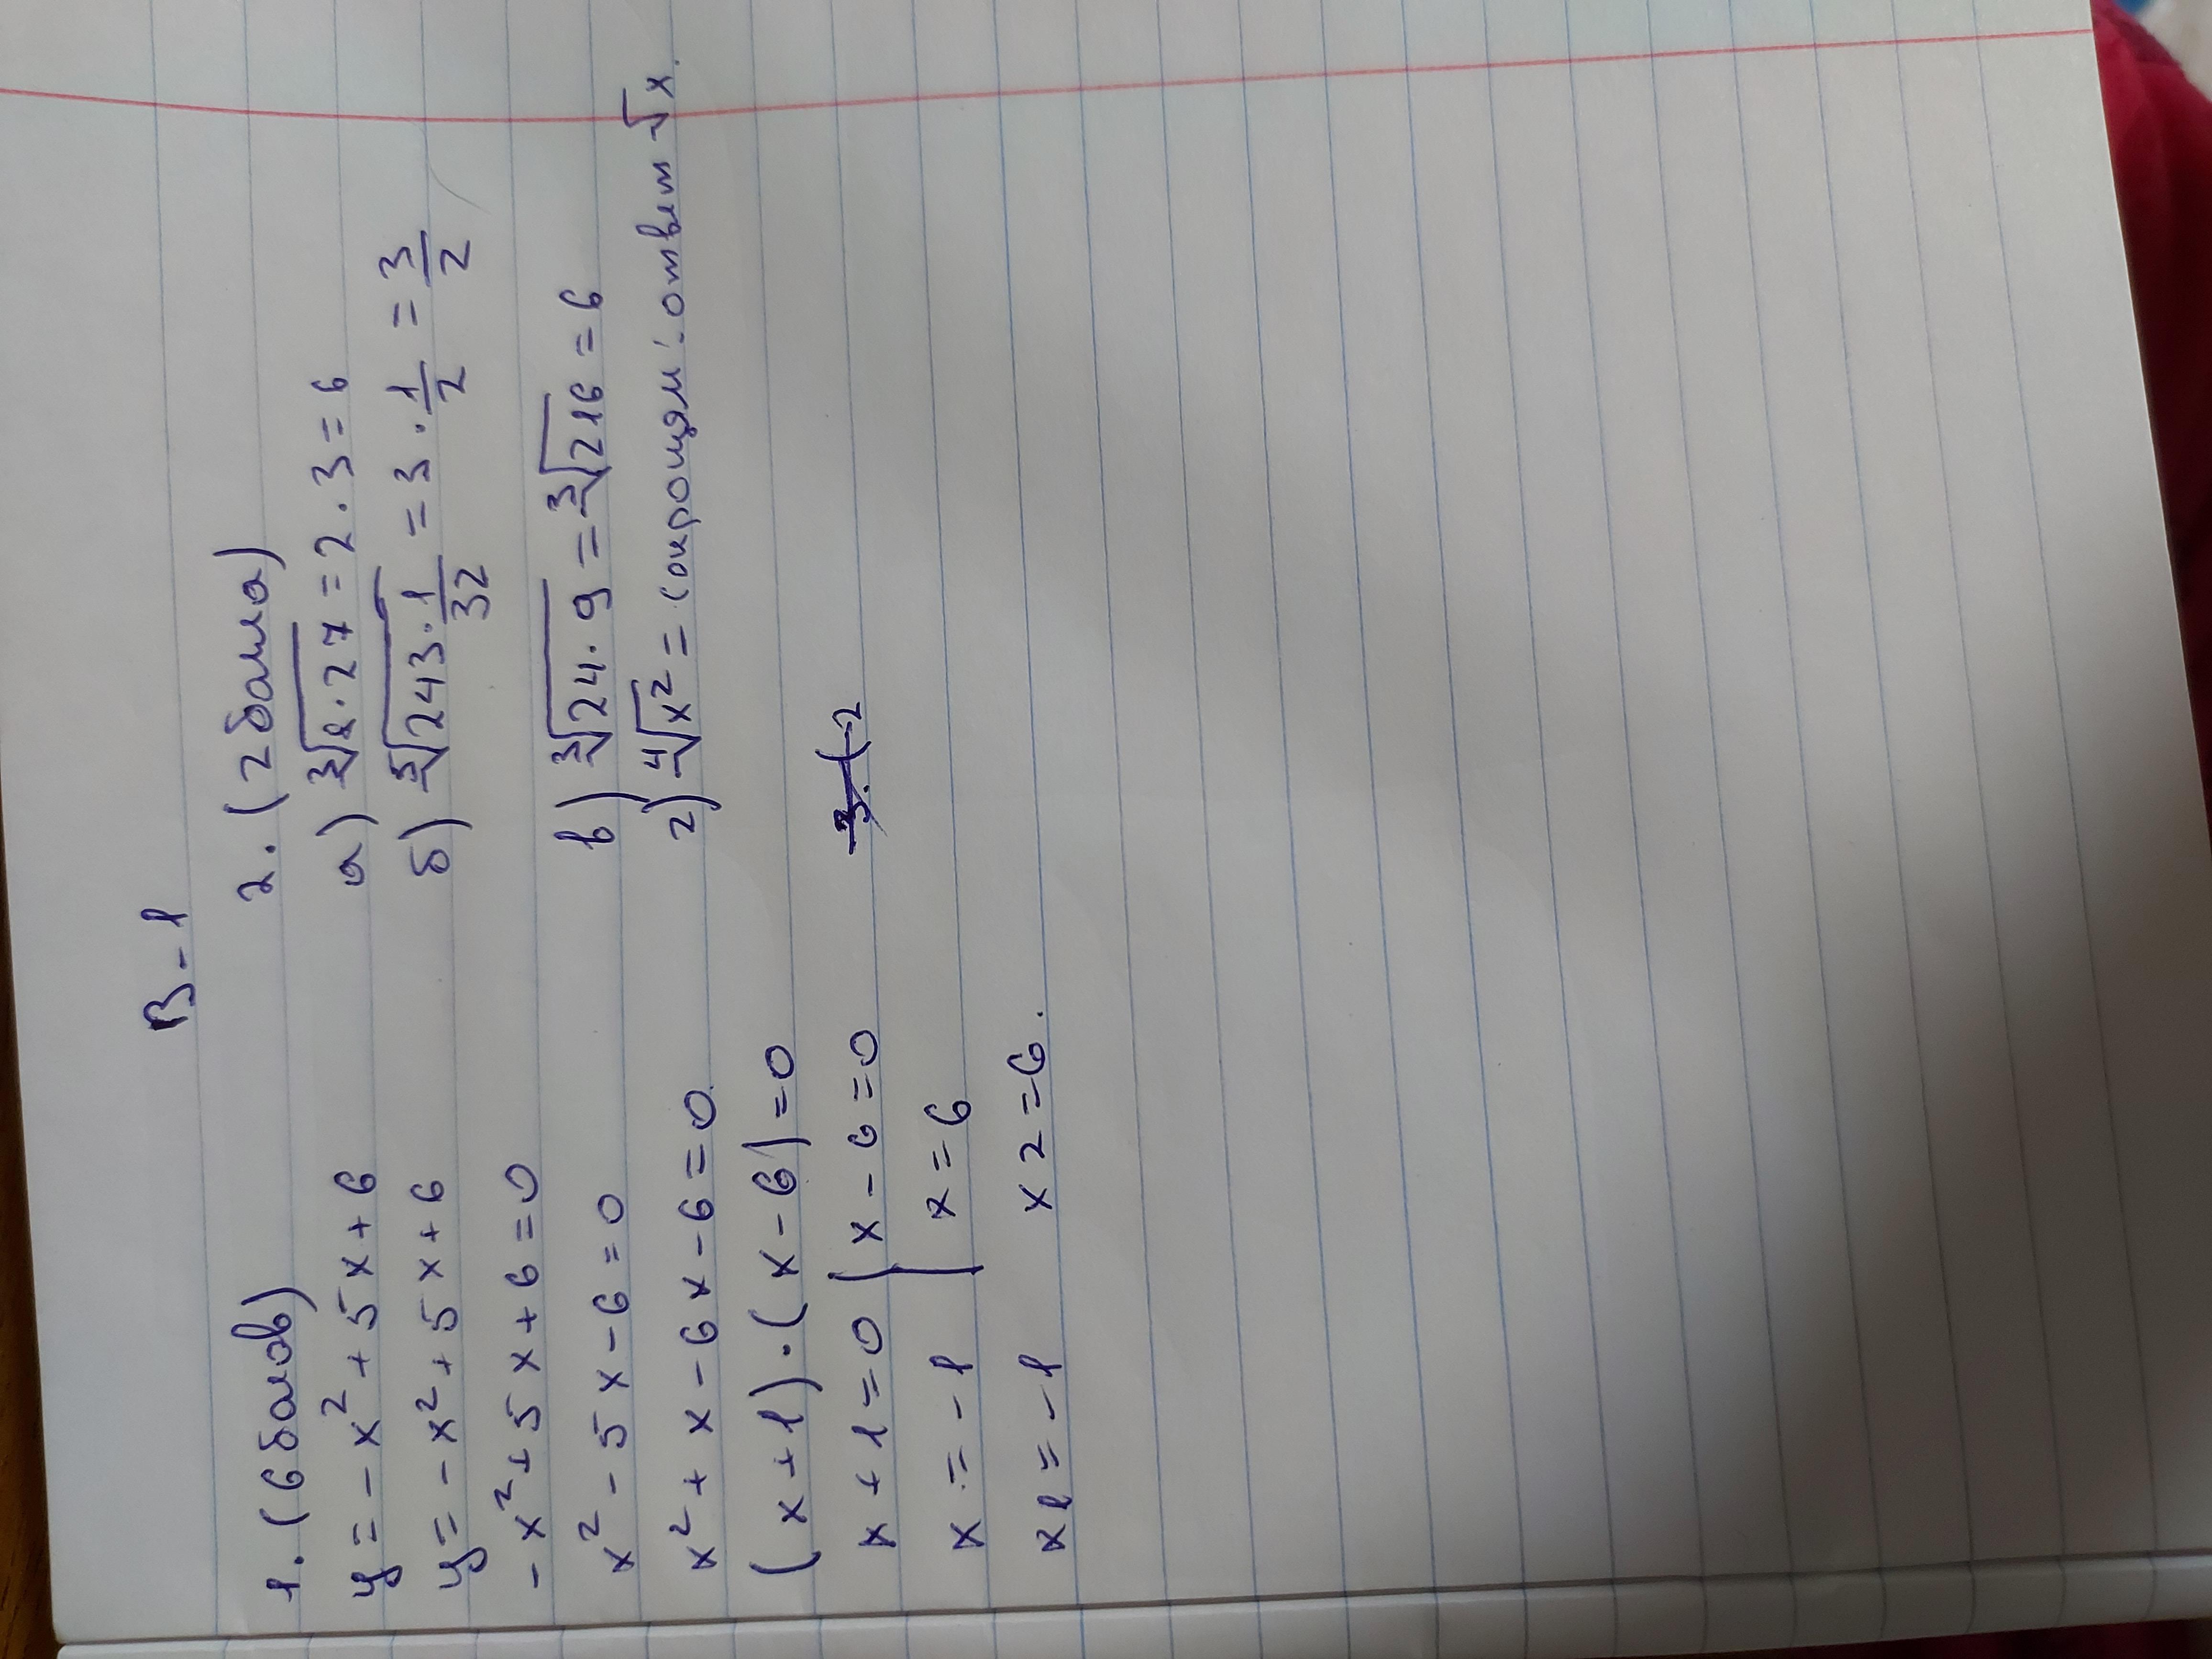 В-1
1. (6 балов)
y = - x² + 5x + 6
y = - x² + 5x + 6
- x² + 5x + 6 = 0
x² - 5x - 6 = 0
x² + x - 6x - 6 = 0
(x + 1) · (x - 6) = 0
x + 1 = 0 | x - 6 = 0
x = - 1 | x = 6
x1 = - 1 x2 = 6.
2. (2 бала)
а) ∛8·27 = 2·3 = 6
б) ⁵√243·1/32 = 3·1/2 = 3/2
в) ∛24·9 = ∛216 = 6
г) ⁴√x² = сокрощям: ответ √x.